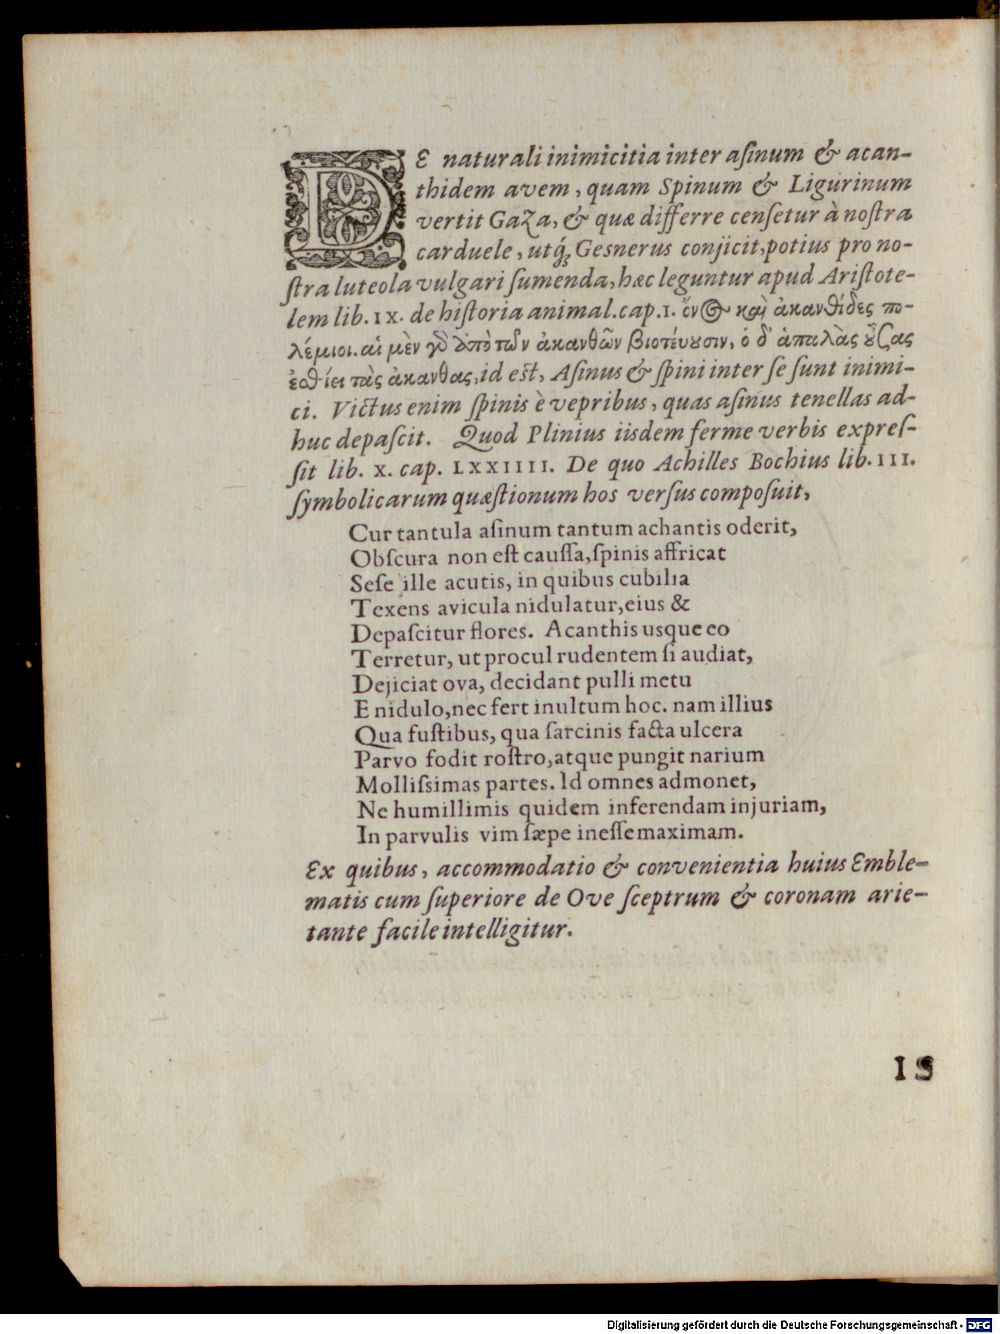 DE naturali inimicitia inter aſinum & acan-
thidem avem, quam Spinum & Ligurinum
vertit Gaza, & quæ differre cenſetur à noſtra
carduele, utq́; Gesnerus conjicit, potius pro no-
ſtra luteola vulgari ſumenda, hæc leguntur apud Ariſtote-
lem lib. IX. de hiſtoria animal. cap. 1. ὄνος καὶ ἀκανθίδες πο-
λέμιοι. αἱ μὲν γὸ ἀπὸ τῶν ἀκανθῶν βιοτεύουσιν, ὁ δ' ἁπαλὰς οὔσας
ἐσθίει τὰς ἀκανθας, id eſt, Aſinus & ſpini inter ſe ſunt inimi-
ci. Victus enim ſpinis è vepribus, quas aſinus tenellas ad-
huc depaſcit. Quod Plinius iisdem ferme verbis expreſ-
ſit lib. X. cap. LXXIIII. De quo Achilles Bochius lib. III.
ſymbolicarum quæſtionum hos verſus compoſuit,
Cur tantula aſinum tantum achantis oderit,
Obſcura non eſt cauſſa, ſpinis affricat
Seſe ille acutis, in quibus cubilia
Texens avicula nidulatur, eius &
Depaſcitur flores. Acanthis usque eo
Terretur, ut procul rudentem ſi audiat,
Dejiciat ova, decidant pulli metu
E nidulo, nec fert inultum hoc. nam illius
Qua fuſtibus, qua ſarcinis facta ulcera
Parvo fodit roſtro, atque pungit narium
Molliſsimas partes. Id omnes admonet,
Ne humillimis quidem inferendam injuriam,
In parvulis vim ſæpe ineſſe maximam.
Ex quibus, accommodatio & convenientia huius Emble-
matis cum ſuperiore de Ove ſceptrum & coronam arie-
tante facile intelligitur.
15
Digitalisierung gefördert durch die Deutsche Forschungsgemeinschaft - DFG